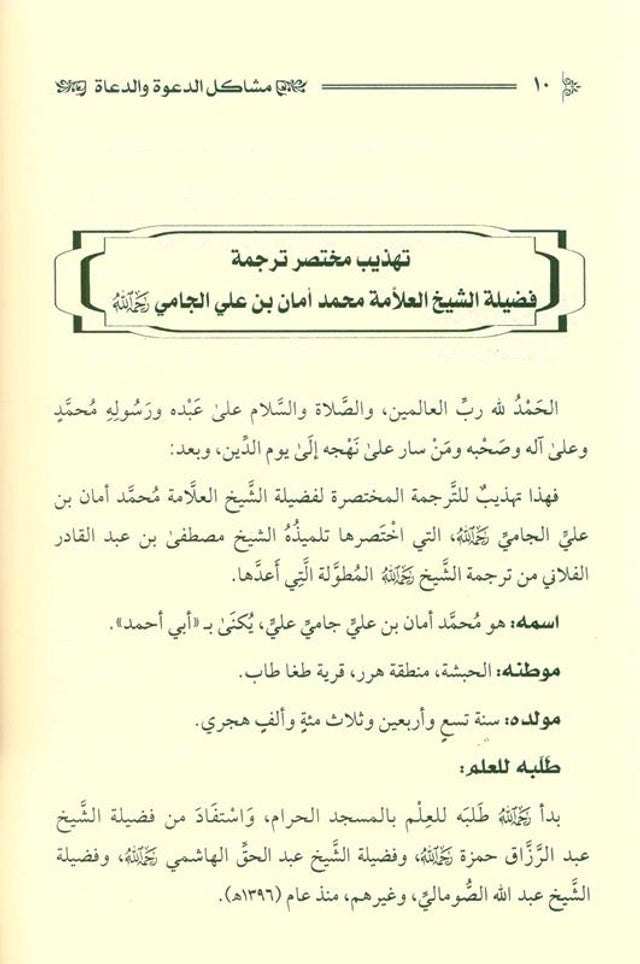 ١٠ مشاكل الدعوة والدعاة
تهذيب مختصر ترجمة
فضيلة الشيخ العلامة محمد أمان بن علي الجامي رَحِمَهُ اللَّهُ
الحَمْدُ لله ربِّ العالمين، والصَّلاة والسَّلام علىٰ عَبْده ورَسُولِهِ مُحمَّدٍ
وعلىٰ آله وصَحْبه ومَنْ سار علىٰ نَهْجه إلَىٰ يوم الدِّين، وبعد:
فهذا تهذيبٌ للتَّرجمة المختصرة لفضيلة الشَّيخ العلَّامة مُحمَّد أمان بن
عليِّ الجاميِّ رَحِمَهُ اللَّهُ، التي اخْتَصرها تلميذُهُ الشيخ مصطفىٰ بن عبد القادر
الفلاني من ترجمة الشَّيخ رَحِمَهُ اللَّهُ المُطوَّلة الَّتِي أَعدَّها.
اسمه: هو مُحمَّد أمان بن عليِّ جاميِّ عليِّ، يُكنَىٰ بـ «أبي أحمد».
موطنه: الحبشة، منطقة هرر، قرية طغا طاب.
مولده: سنة تسعٍ وأربعين وثلاث مئةٍ وألفٍ هجري.
طَلَبه للعلم:
بدأ رَحِمَهُ اللَّهُ طَلَبَه للعِلْم بالمسجد الحرام، وَاسْتفَادَ من فضيلة الشَّيخ
عبد الرَّزَّاق حمزة رَحِمَهُ اللَّهُ، وفضيلة الشَّيخ عبد الحقِّ الهاشمي رَحِمَهُ اللَّهُ، وفضيلة
الشَّيخ عبد الله الصُّوماليِّ، وغيرهم، منذ عام (١٣٩٦هـ).